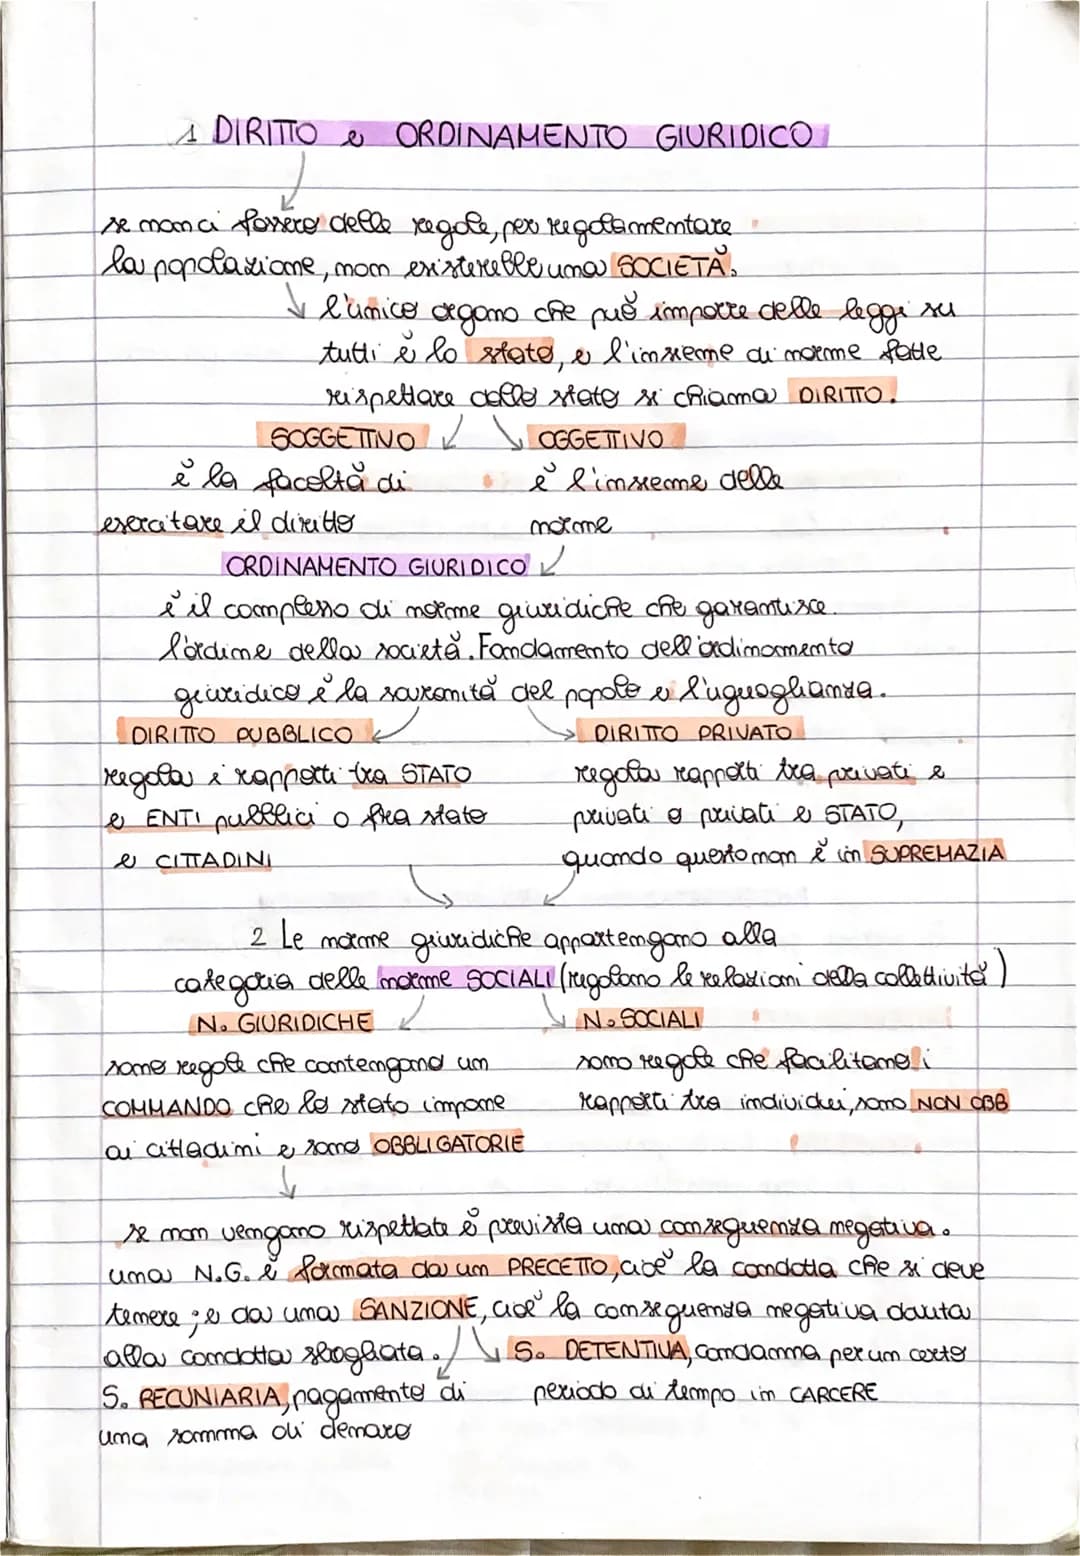 1 DIRITTO e ORDINAMENTO GIURIDICO
se non ci fossero delle regole, per regolamentare
la popolazione, non esisterebbe una SOCIETÀ.
l'unico organo che può imporre delle leggi su
tutti è lo stato, e l'insieme di norme fatte
rispettare dallo stato si chiama DIRITTO.
SOGGETTIVO OGGETTIVO
è la facoltà di è l'insieme delle
esercitare il diritto norme
ORDINAMENTO GIURIDICO
è il complesso di norme giuridiche che garantisce
l'ordine della società. Fondamento dell'ordinamento
giuridico è la sovranità del popolo e l'uguaglianza.
DIRITTO PUBBLICO DIRITTO PRIVATO
regola i rapporti tra STATO regola rapporti tra privati e
e ENTI pubblici o fra stato privati o privati e STATO,
e CITTADINI quando questo non è in SUPREMAZIA
2 Le norme giuridiche appartengono alla
categoria delle norme SOCIALI (regolano le relazioni della collettività)
N. GIURIDICHE N. SOCIALI
sono regole che contengono un sono regole che facilitano i
COMMANDO che lo stato impone rapporti tra individui, sono NON OBB
ai cittadini e sono OBBLIGATORIE
se non vengono rispettate è prevista una conseguenza negativa.
una N.G. è formata da un PRECETTO, cioè la condotta che si deve
tenere ; e da una SANZIONE, cioè la conseguenza negativa dovuta
alla condotta sbagliata. S. DETENTIVA, condanna per un certo
S. PECUNIARIA, pagamento di periodo di tempo in CARCERE
una somma di denaro